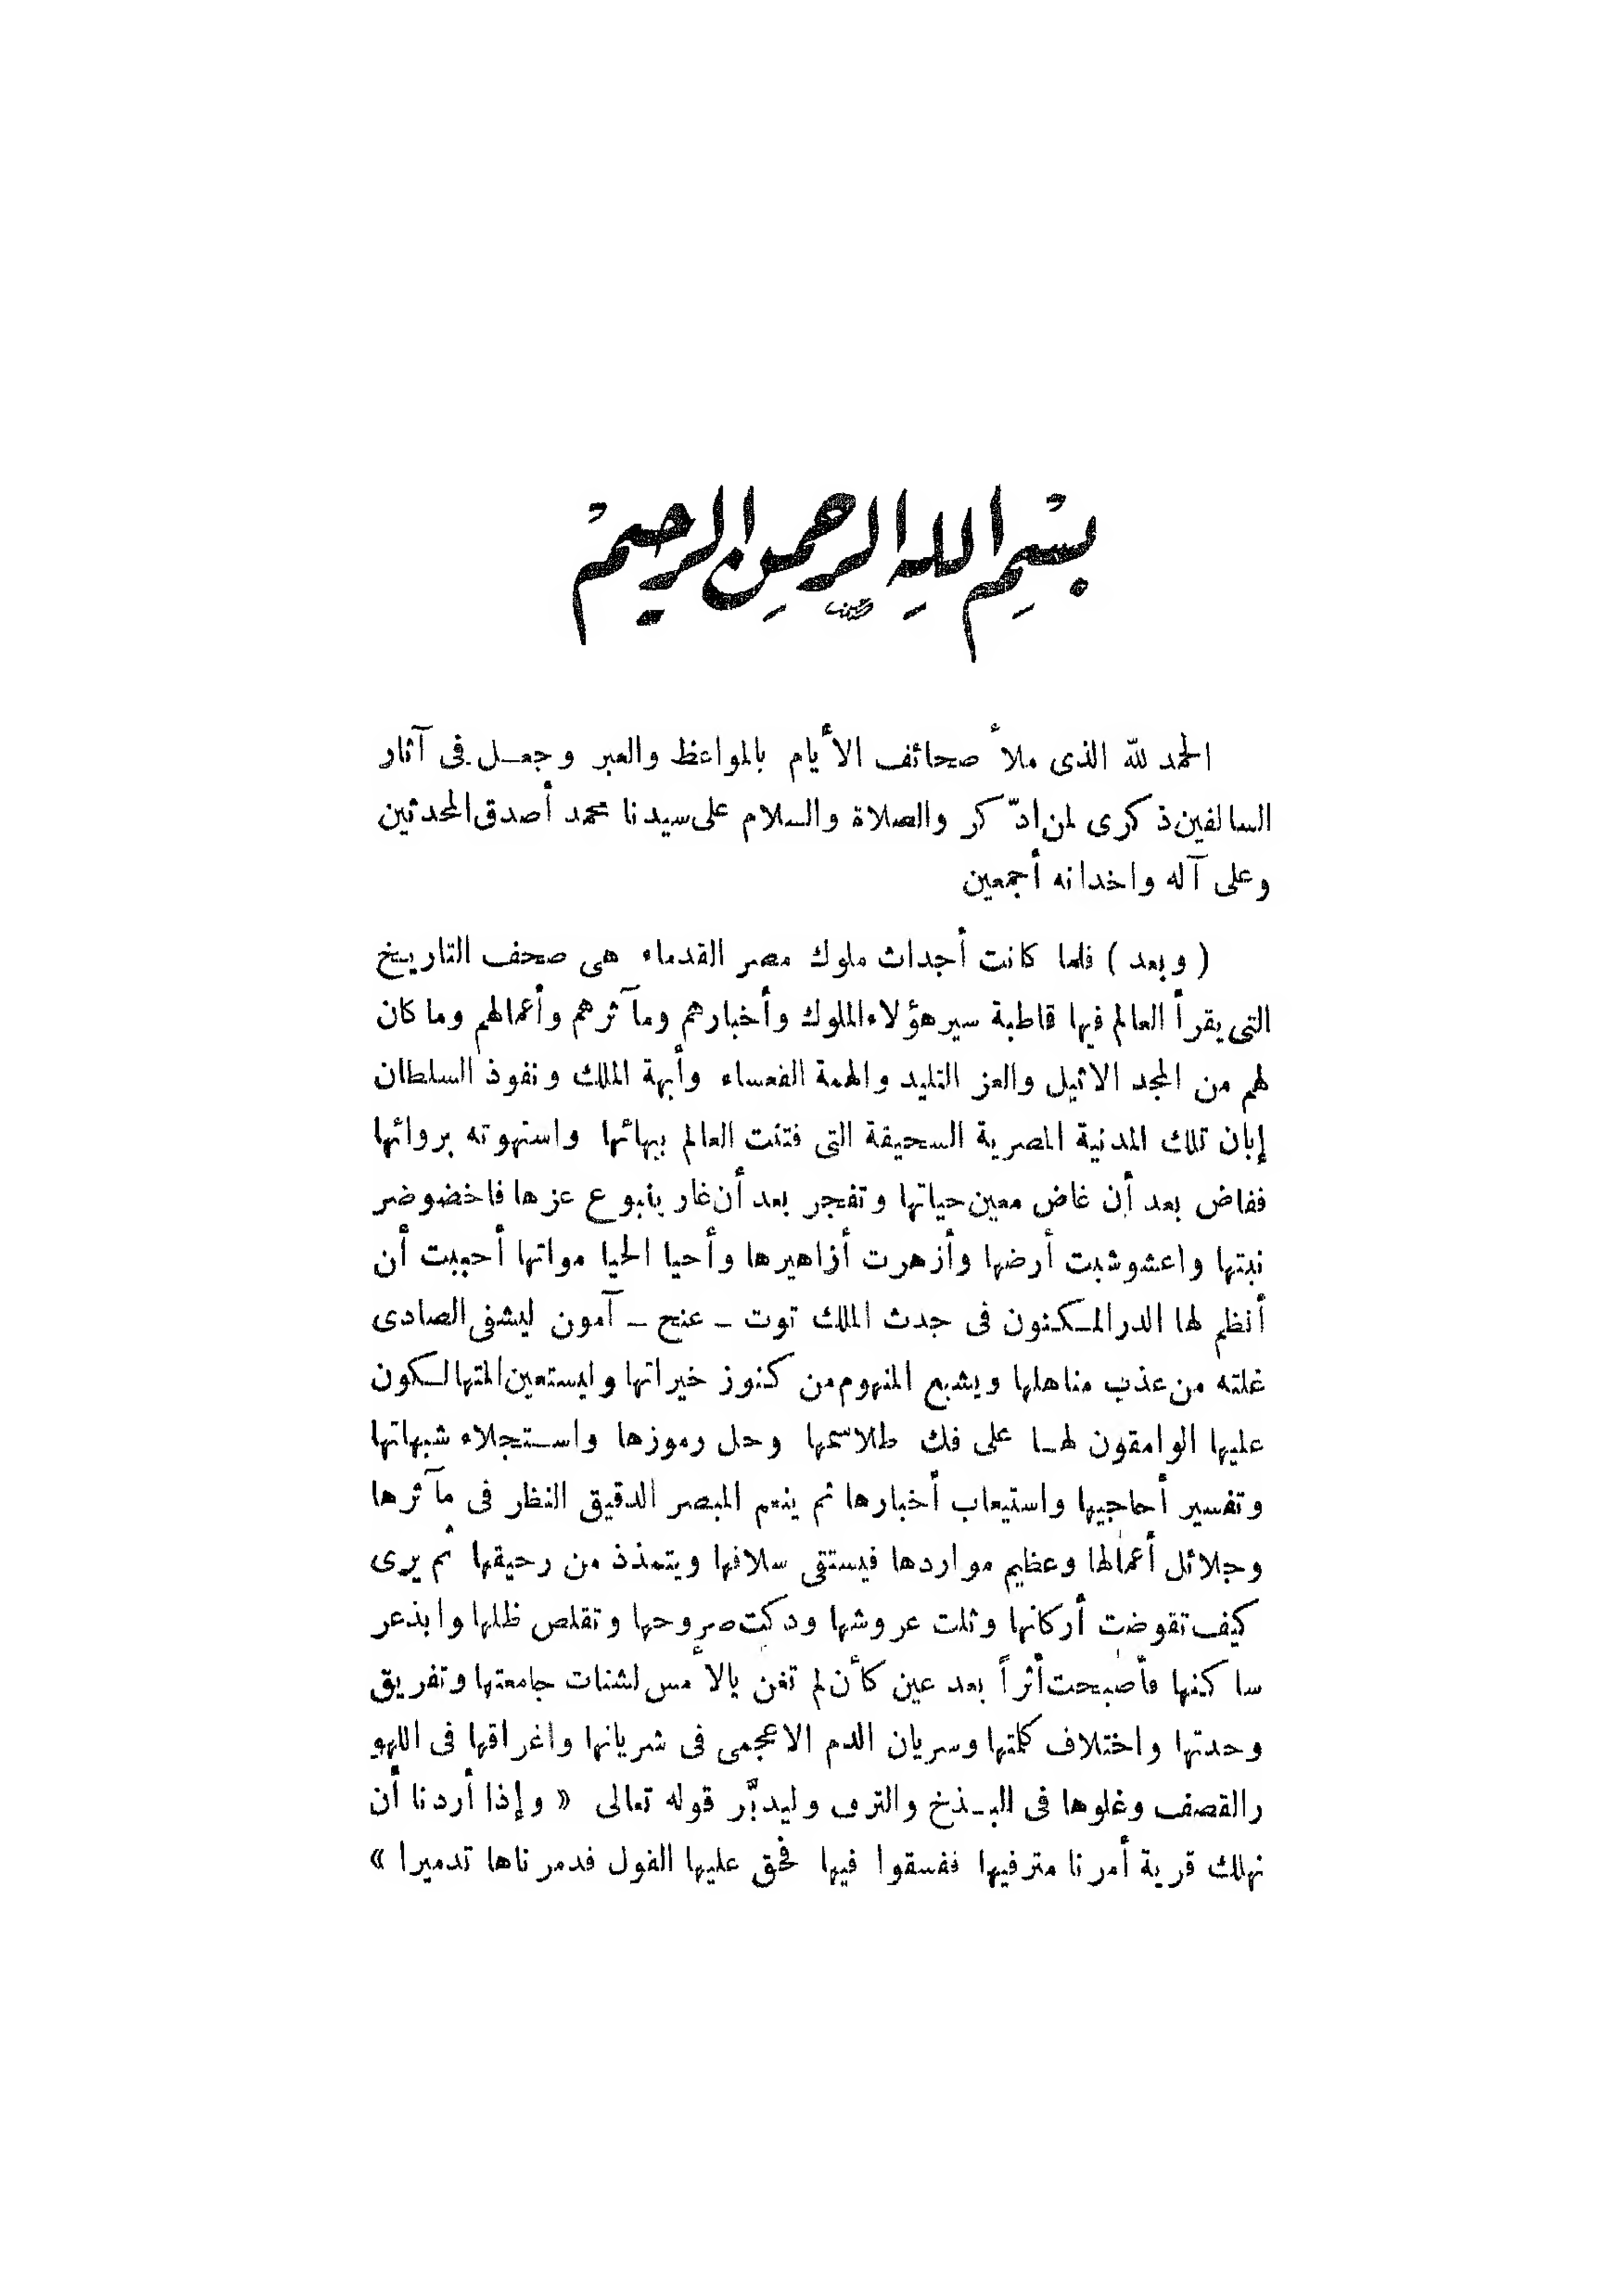 بسم الله الرحمن الرحيم
الحمد لله الذى ملأ صحائف الأيام بالمواعظ والعبر وجعل فى آثار
السالفين ذكرى لمن ادّكر والصلاة والسلام على سيدنا محمد أصدق المحدثين
وعلى آله واخدانه أجمعين
( وبعد ) فلما كانت أجداث ملوك مصر القدماء هى صحف التاريخ
التى يقرأ العالم فيها قاطبة سير هؤلاء الملوك وأخبارهم ومآثرهم وأعمالهم وما كان
لهم من المجد الاثيل والعز التليد والهمة القعساء وأبهة الملك ونفوذ السلطان
إبان تلك المدنية المصرية السحيقة التى فتنت العالم ببهائها واستهوته بروائها
ففاض بعد أن غاض معين حياتها وتفجر بعد أن غار ينبوع عزها فاخضوضر
نبتها واعشوشبت أرضها وأزهرت أزاهيرها وأحيا الحيا مواتها أحببت أن
أنظم لها الدر المكنون فى جدث الملك توت ـ عنح ـ آمون ليشفى الصادى
غلته من عذب مناهلها ويشبع المنهوم من كنوز خيراتها وليستعين المتهالكون
عليها الوامقون لها على فك طلاسمها وحل رموزها واستجلاء شبهاتها
وتفسير أحاجيها واستيعاب أخبارها ثم ينعم المبصر الدقيق النظر فى مآثرها
وجلائل أعمالها وعظيم مواردها فيستقى سلافها ويتمذذ من رحيقها ثم يرى
كيف تقوضت أركانها وثلت عروشها ودكت صروحها وتقلص ظلها وابذعر
ساكنها فأصبحت أثراً بعد عين كأن لم تغن بالأمس لشتات جامعتها وتفريق
وحدتها واختلاف كلمتها وسريان الدم الاعجمى فى شريانها واغراقها فى اللهو
والقصف وغلوها فى البذخ والترف وليدبَّر قوله تعالى « وإذا أردنا أن
نهلك قرية أمرنا مترفيها ففسقوا فيها فحق عليها القول فدمرناها تدميرا »